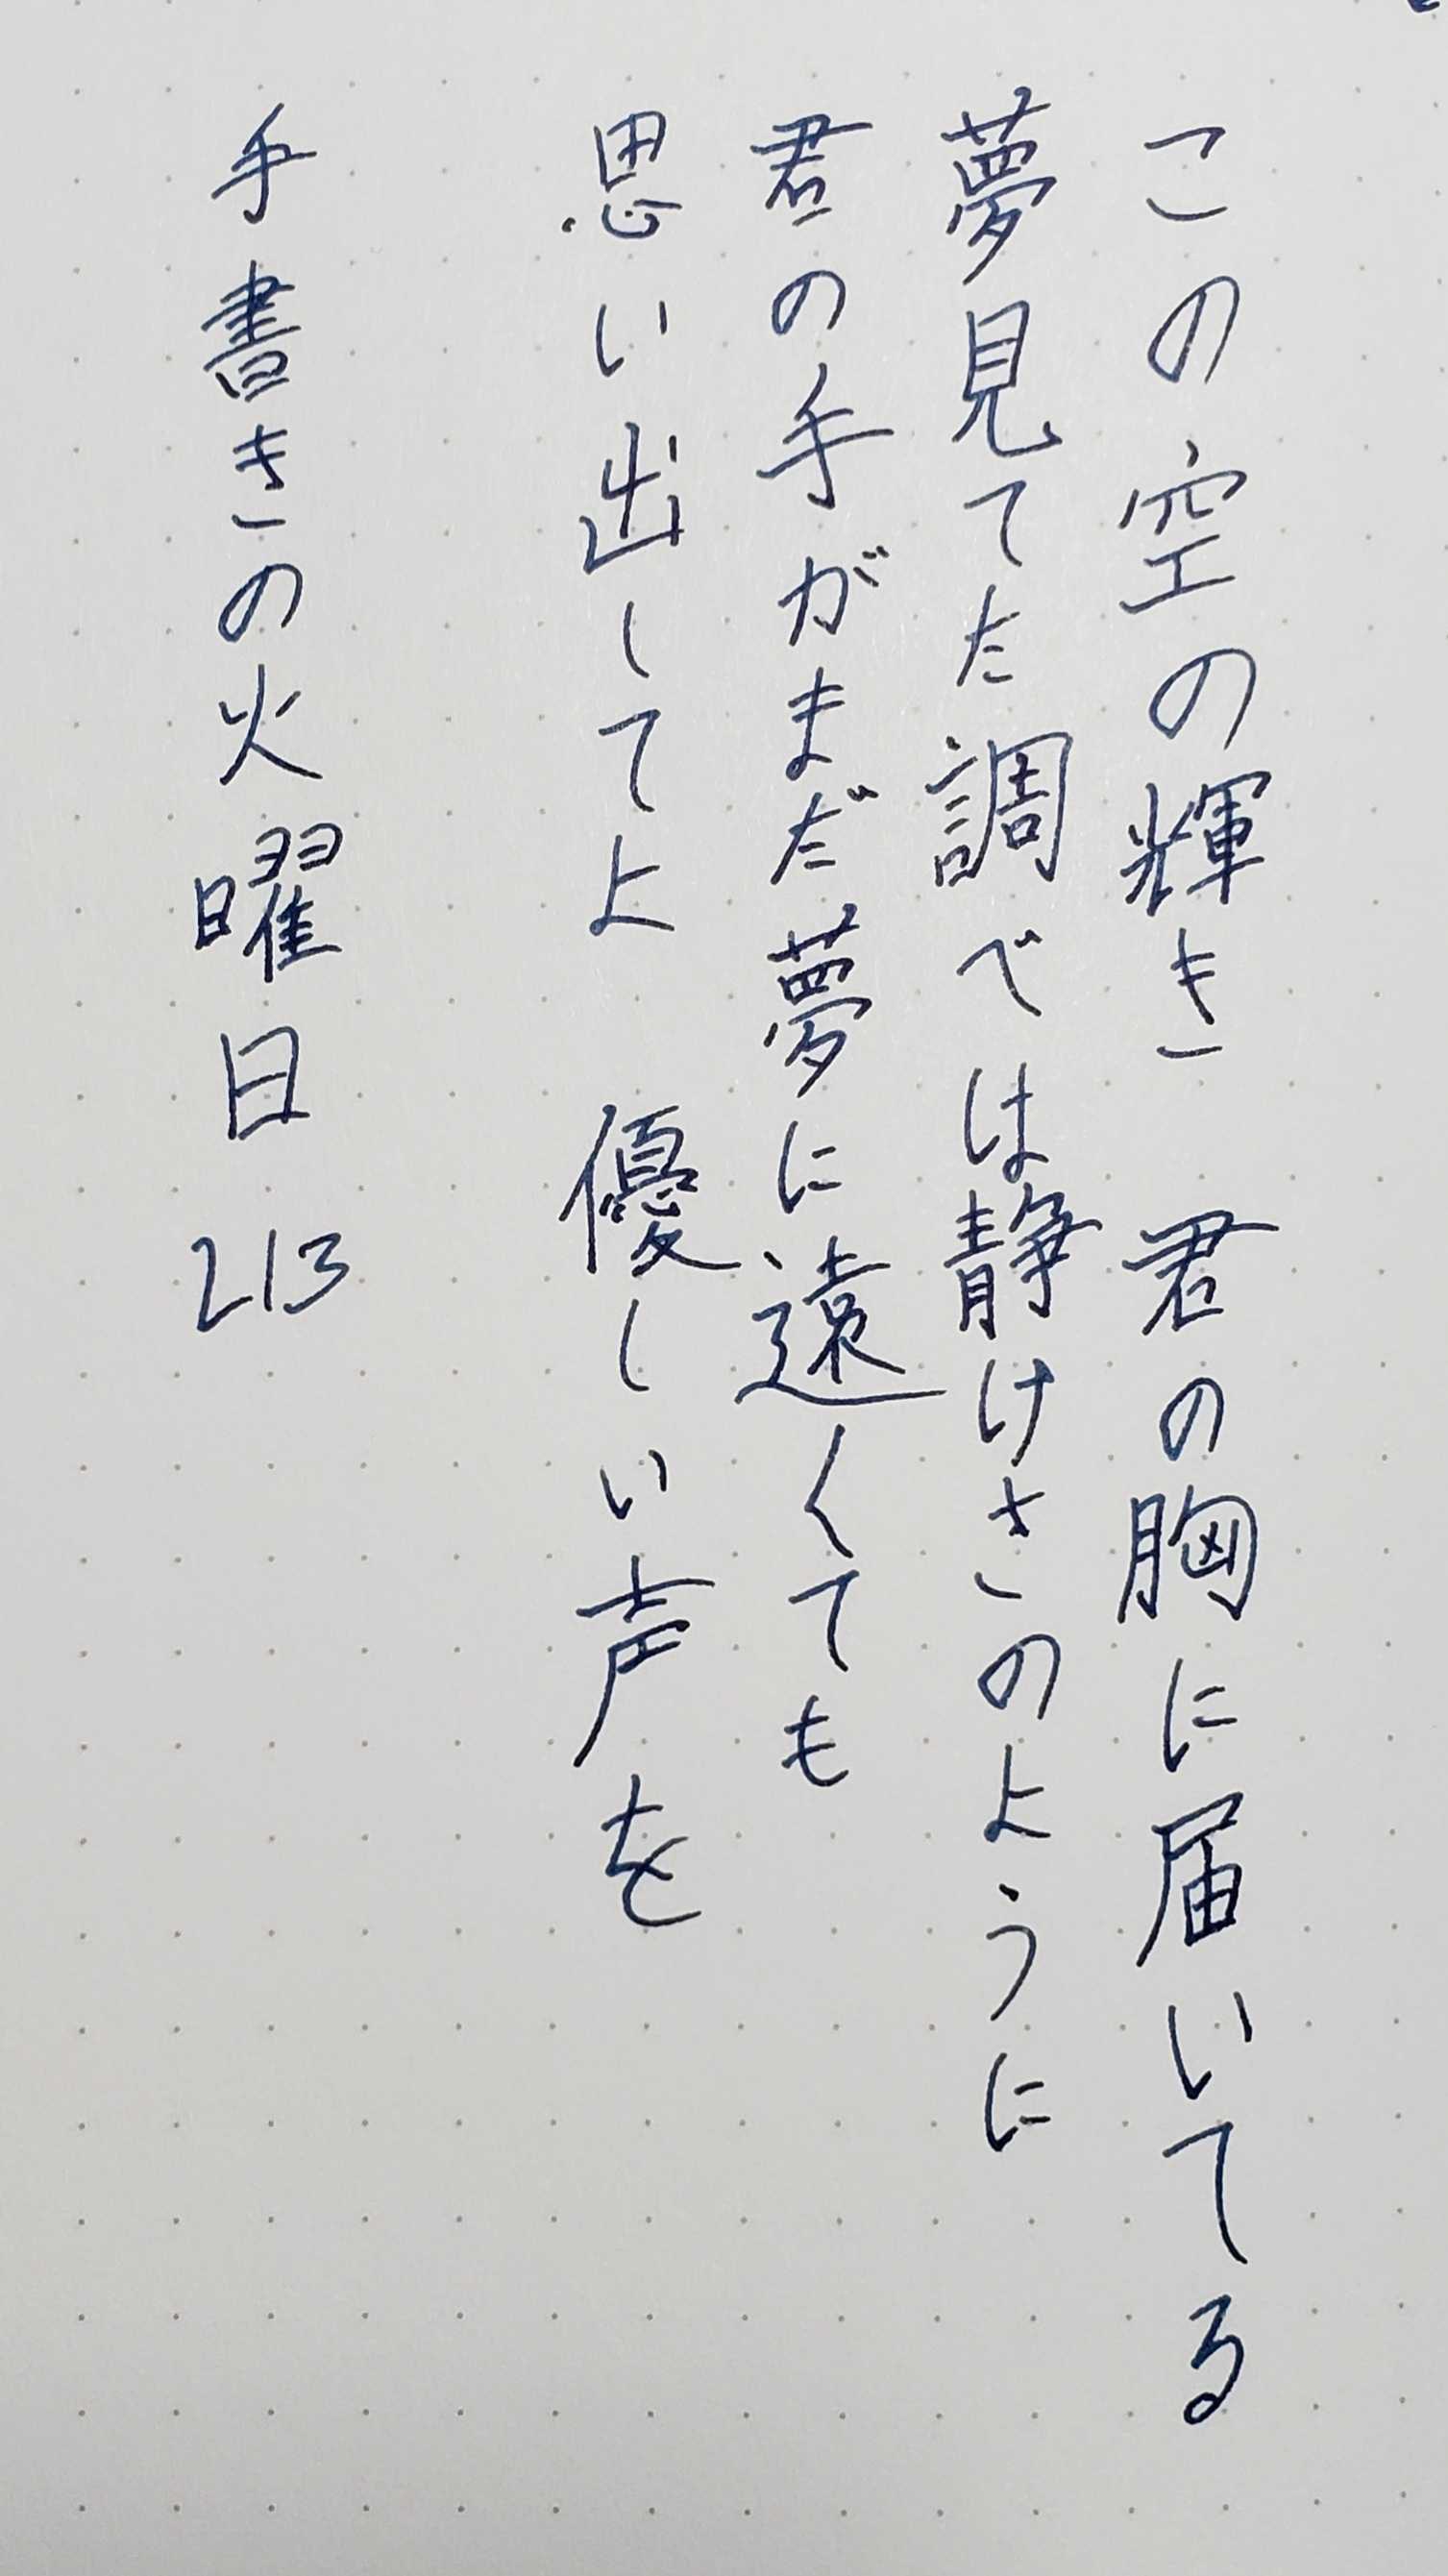 この空の輝き　君の胸に届いてる
夢見てた調べは静けさのように
君の手がまだ夢に遠くても
思い出してよ　優しい声を
手書きの火曜日 213